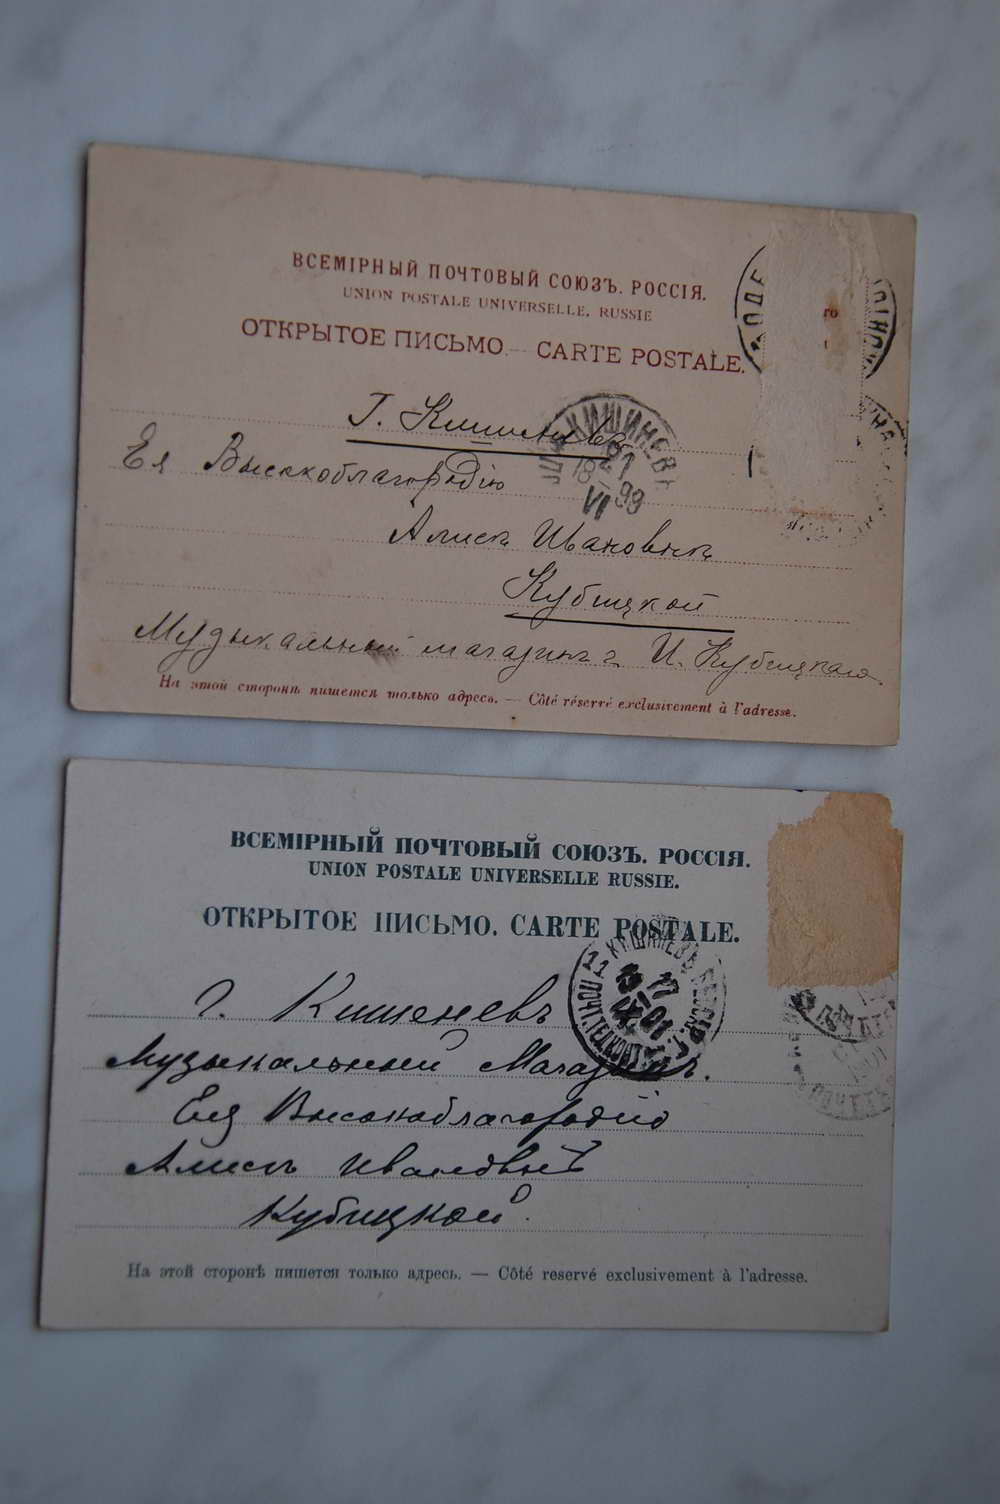 ВСЕМІРНЫЙ ПОЧТОВЫЙ СОЮЗЪ. РОССІЯ.
UNION POSTALE UNIVERSELLE, RUSSIE
ОТКРЫТОЕ ПИСЬМО. — CARTE POSTALE.
ОДЕ
го
Г. Кишиневъ
КИШИНЕВЪ
18 99
VI
Ея Высокоблагородію
Алисѣ Ивановнѣ
Кубицкой
Музыкальный магазинъ И. Кубицкаго.
На этой сторонѣ пишется только адресъ. — Côté réservé exclusivement à l'adresse.
ВСЕМІРНЫЙ ПОЧТОВЫЙ СОЮЗЪ. РОССІЯ.
UNION POSTALE UNIVERSELLE RUSSIE.
ОТКРЫТОЕ ПИСЬМО. CARTE POSTALE.
КИШИНЕВЪ БЕССАР. Г.
17
19 01
IX
г. Кишеневъ
Музыкальный Магазинъ.
Ея Высокоблагородію
Алисѣ Ивановнѣ
Кубицкой.
На этой сторонѣ пишется только адресъ. — Côté reservé exclusivement à l'adresse.